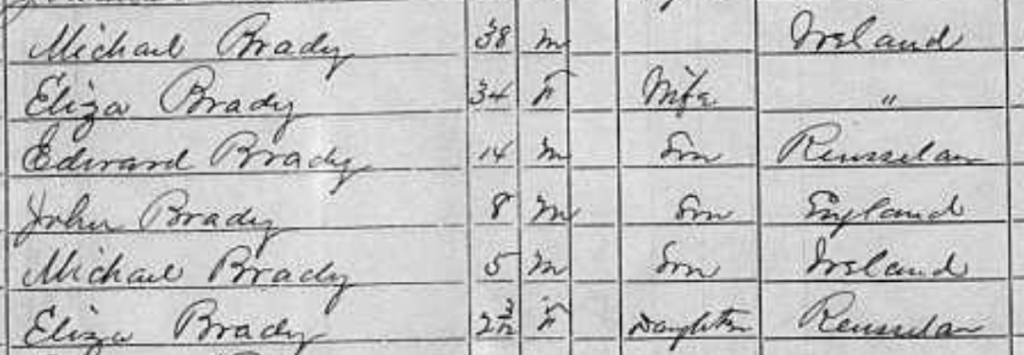 Michael Brady 38 M Ireland
Eliza Brady 34 F Wife "
Edward Brady 14 M Son Rensselar
John Brady 8 M Son England
Michael Brady 5 M Son Ireland
Eliza Brady 2 3/12 F Daughter Rensselar